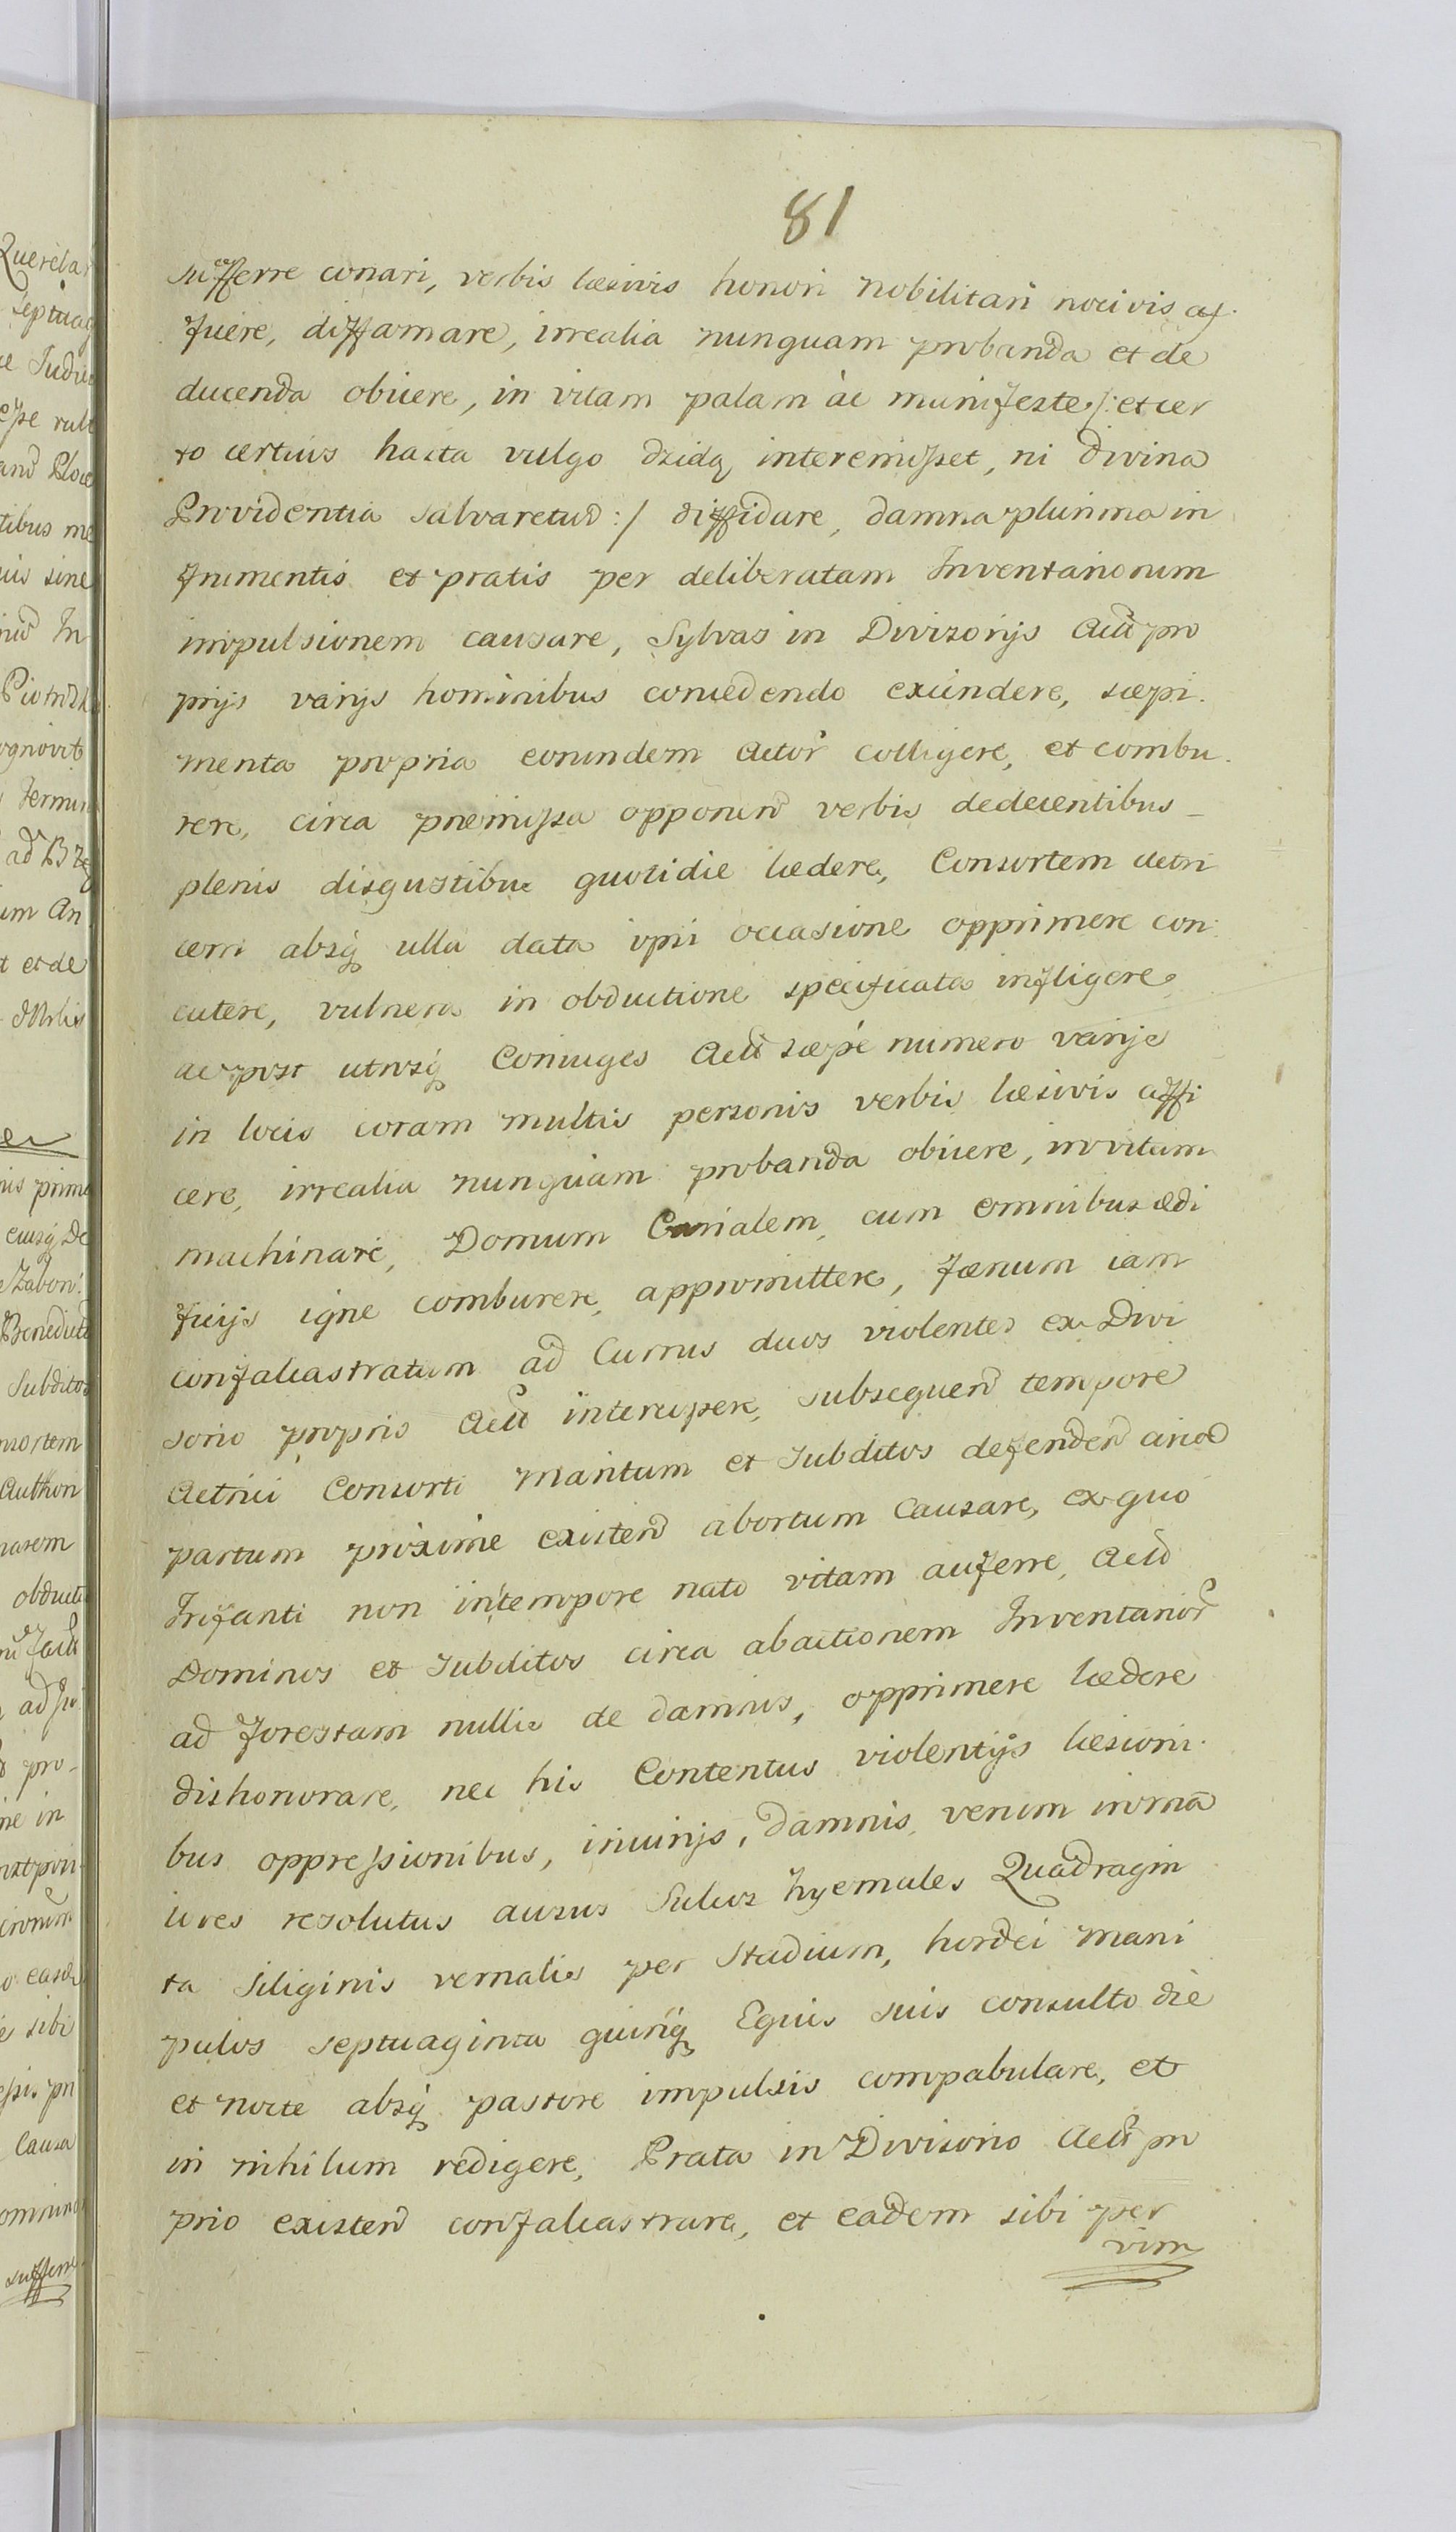 81
sufferre conari, verbis læsivis honori nobilitari nocivis af
ficere, diffamare, irrealia nunquam probanda et de
ducenda obiicere, in vitam palam ac manifeste /: et cer
to certius hasta vulgo dzidą interemisset, ni Divina
Providentia salvaretur :/ diffidare, damna plurima in
frumentis et pratis per deliberatam Inventariorum
impulsionem causare, Sylvas in Divisorijs Actt pro
prijs varijs hominibus concedendo excindere, sæpi
menta propria eorundem Actor colligere, et combu
rere, circa præmissa opponend verbis dedecentibus
plenis disgustibus quotidie lædere, Consortem Actri
cem absq ulla data ipsi occasione opprimere con
cutere, vulnera in obductione specificata infligere
ac post utrosq Coniuges Actt sæpe numero varijs
in locis coram multis personis verbis læsivis affi
cere, irrealia nunquam probanda obiicere, in vitam
machinare, Domum Curialem, cum omnibus ædi
ficijs igne comburere, appromittere, fænum iam
confalcastratum ad Currus duos violenter ex Divi
sorio proprio Actt intercipere, subsequend tempore
Actrici Consorti Maritum et Subditos defendend circa
partum proxime existend abortum causare, ex quo
Infanti non intempore nato vitam auferre, Actt
Dominos et Subditos circa abactionem Inventarior
ad forestam nullis de damnis, opprimere lædere
dishonorare, nec his Contentus violentijs læsioni
bus oppressionibus, iniurijs, damnis, verum in ma
iores resolutus ausus Sulcos hyemales Quadragin
ta Siliginis vernalis per Stadium, hordei mani
pulos septuaginta quinq Equis suis consulto die
et nocte absq pastore impulsis compabulare, et
in nihilum redigere, Prata in Divisorio Actt pro
prio existend confalcastrare, et eadem sibi per
vim